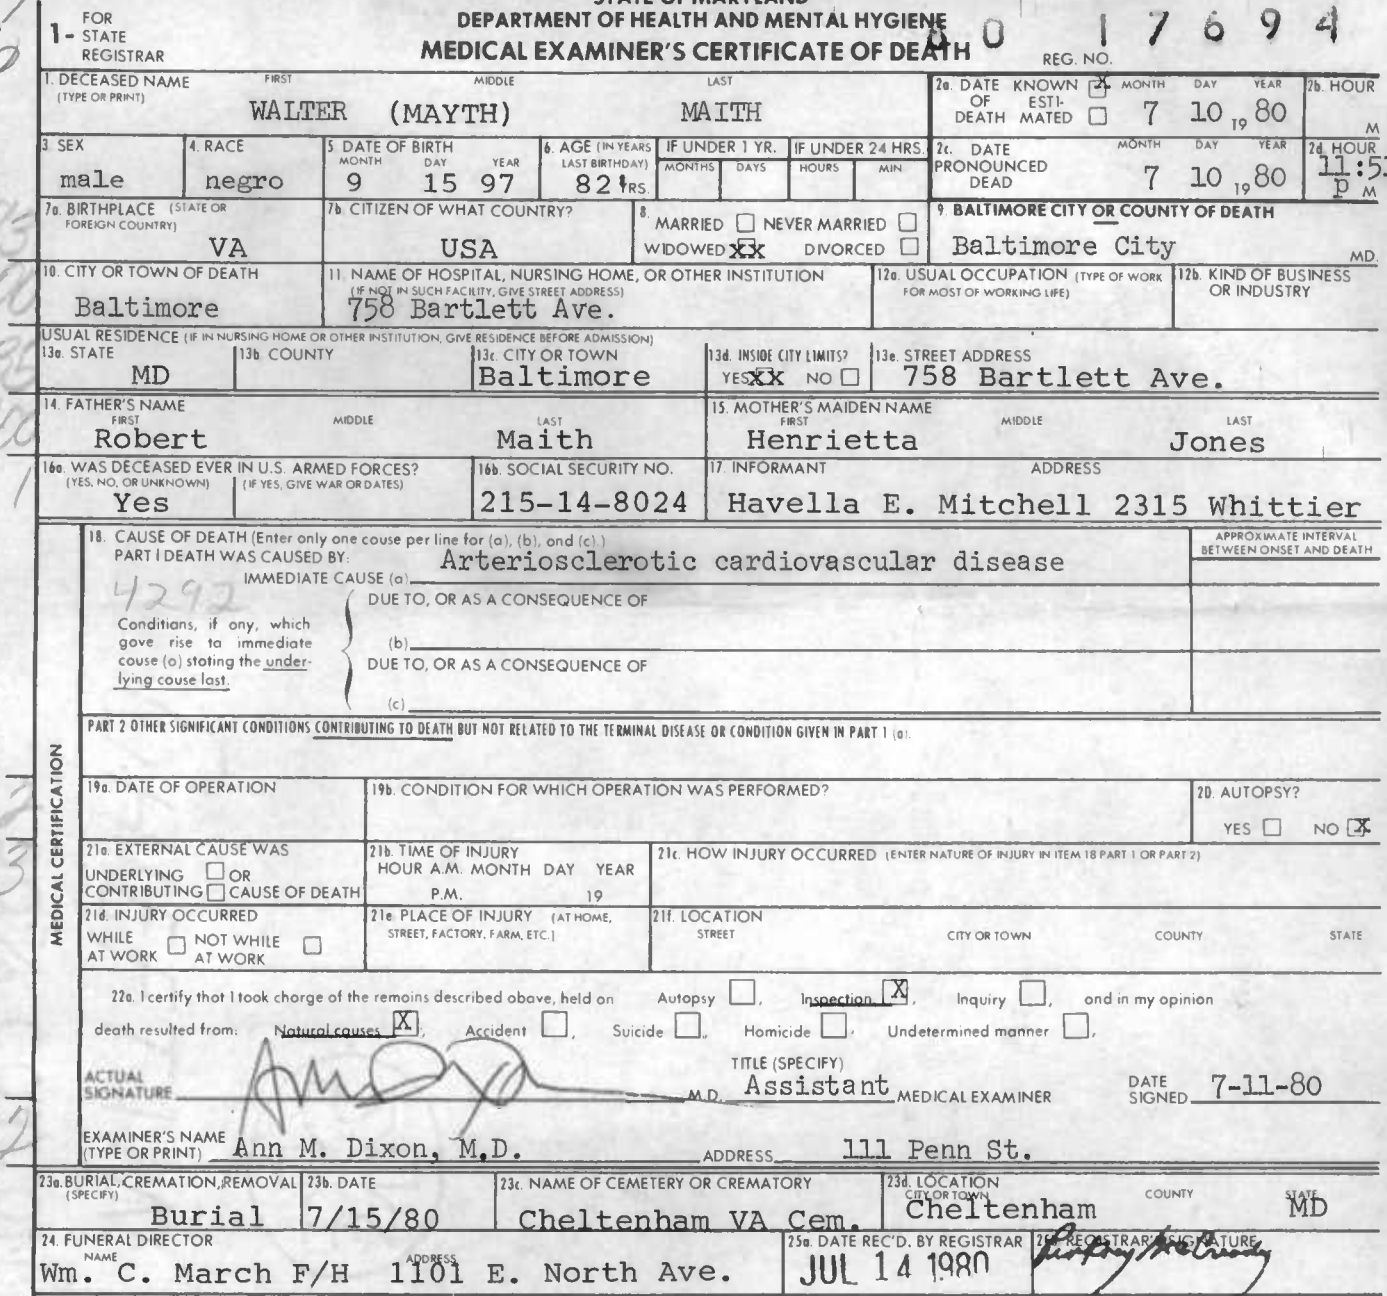 STATE OF MARYLAND
DEPARTMENT OF HEALTH AND MENTAL HYGIENE
MEDICAL EXAMINER'S CERTIFICATE OF DEATH
1- FOR STATE REGISTRAR
80 17694
REG. NO.
1. DECEASED NAME (TYPE OR PRINT) FIRST MIDDLE LAST
WALTER (MAYTH) MAITH
2a. DATE OF DEATH KNOWN X ESTIMATED MONTH DAY YEAR
7 10 19 80
2b. HOUR
M
3. SEX
male
4. RACE
negro
5. DATE OF BIRTH
MONTH DAY YEAR
9 15 97
6. AGE (IN YEARS LAST BIRTHDAY)
82 YRS.
IF UNDER 1 YR.
MONTHS DAYS
IF UNDER 24 HRS.
HOURS MIN
2c. DATE PRONOUNCED DEAD MONTH DAY YEAR
7 10 19 80
2d. HOUR
11:5
p M
7a. BIRTHPLACE (STATE OR FOREIGN COUNTRY)
VA
7b. CITIZEN OF WHAT COUNTRY?
USA
8. MARRIED NEVER MARRIED
WIDOWED XX DIVORCED
9. BALTIMORE CITY OR COUNTY OF DEATH
Baltimore City MD.
10. CITY OR TOWN OF DEATH
Baltimore
11. NAME OF HOSPITAL, NURSING HOME, OR OTHER INSTITUTION
(IF NOT IN SUCH FACILITY, GIVE STREET ADDRESS)
758 Bartlett Ave.
12a. USUAL OCCUPATION (TYPE OF WORK FOR MOST OF WORKING LIFE)
12b. KIND OF BUSINESS OR INDUSTRY
USUAL RESIDENCE (IF IN NURSING HOME OR OTHER INSTITUTION, GIVE RESIDENCE BEFORE ADMISSION)
13a. STATE
MD
13b. COUNTY
13c. CITY OR TOWN
Baltimore
13d. INSIDE CITY LIMITS?
YES XX NO
13e. STREET ADDRESS
758 Bartlett Ave.
14. FATHER'S NAME
FIRST MIDDLE LAST
Robert Maith
15. MOTHER'S MAIDEN NAME
FIRST MIDDLE LAST
Henrietta Jones
16a. WAS DECEASED EVER IN U.S. ARMED FORCES?
(YES, NO, OR UNKNOWN) (IF YES, GIVE WAR OR DATES)
Yes
16b. SOCIAL SECURITY NO.
215-14-8024
17. INFORMANT ADDRESS
Havella E. Mitchell 2315 Whittier
MEDICAL CERTIFICATION
18. CAUSE OF DEATH (Enter only one cause per line for (a), (b), and (c).)
PART I DEATH WAS CAUSED BY:
APPROXIMATE INTERVAL BETWEEN ONSET AND DEATH
IMMEDIATE CAUSE (a) Arteriosclerotic cardiovascular disease
4292
DUE TO, OR AS A CONSEQUENCE OF
Conditions, if any, which
gave rise to immediate
cause (a) stating the under-
lying cause last.
(b)
DUE TO, OR AS A CONSEQUENCE OF
(c)
PART 2 OTHER SIGNIFICANT CONDITIONS CONTRIBUTING TO DEATH BUT NOT RELATED TO THE TERMINAL DISEASE OR CONDITION GIVEN IN PART 1 (a).
19a. DATE OF OPERATION
19b. CONDITION FOR WHICH OPERATION WAS PERFORMED?
20. AUTOPSY?
YES NO X
21a. EXTERNAL CAUSE WAS
UNDERLYING OR
CONTRIBUTING CAUSE OF DEATH
21b. TIME OF INJURY
HOUR A.M. MONTH DAY YEAR
P.M. 19
21c. HOW INJURY OCCURRED (ENTER NATURE OF INJURY IN ITEM 18 PART 1 OR PART 2)
21d. INJURY OCCURRED
WHILE AT WORK NOT WHILE AT WORK
21e. PLACE OF INJURY (AT HOME, STREET, FACTORY, FARM, ETC.)
21f. LOCATION
STREET CITY OR TOWN COUNTY STATE
22a. I certify that I took charge of the remains described above, held on Autopsy , Inspection X, Inquiry , and in my opinion
death resulted from: Natural causes X, Accident , Suicide , Homicide , Undetermined manner ,
ACTUAL SIGNATURE M.D.
TITLE (SPECIFY)
Assistant MEDICAL EXAMINER
DATE SIGNED 7-11-80
EXAMINER'S NAME (TYPE OR PRINT) Ann M. Dixon, M.D. ADDRESS 111 Penn St.
23a. BURIAL, CREMATION, REMOVAL (SPECIFY)
Burial
23b. DATE
7/15/80
23c. NAME OF CEMETERY OR CREMATORY
Cheltenham VA Cem.
23d. LOCATION
CITY OR TOWN COUNTY STATE
Cheltenham MD
24. FUNERAL DIRECTOR
NAME ADDRESS
Wm. C. March F/H 1101 E. North Ave.
25a. DATE REC'D. BY REGISTRAR
JUL 14 1980
REGISTRAR'S SIGNATURE